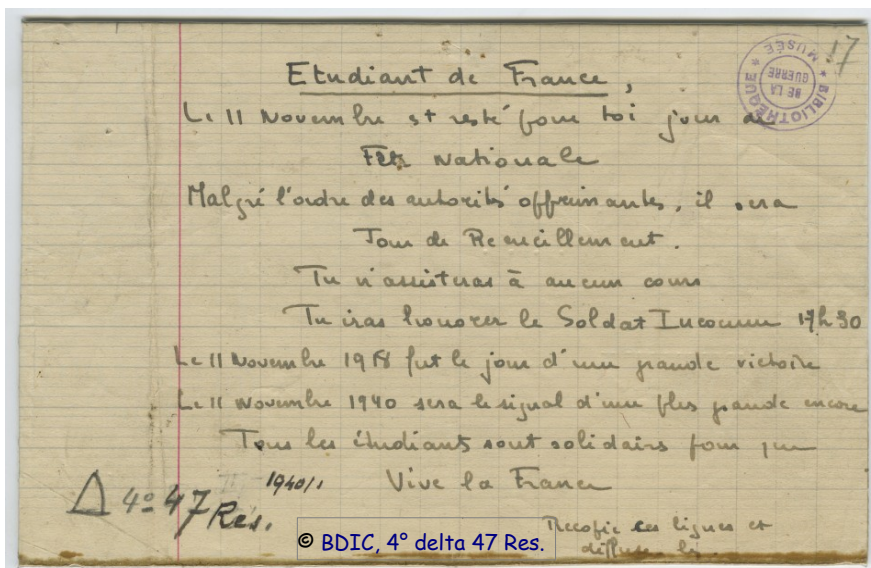 17
BIBLIOTHÈQUE * MUSÉE *
DE LA
GUERRE
Etudiant de France,
Le 11 Novembre est resté pour toi jour de
Fête Nationale
Malgré l'ordre des autorités opprimantes, il sera
Jour de Recueillement.
Tu n'assisteras à aucun cours
Tu iras honorer le Soldat Inconnu 17h30
Le 11 Novembre 1918 fut le jour d'une grande victoire
Le 11 Novembre 1940 sera le signal d'une plus grande encore
Tous les étudiants sont solidaires pour que
Vive la France
1940/1
Δ 4° 47 Rés.
Recopie ces lignes et
diffuse les
© BDIC, 4° delta 47 Res.